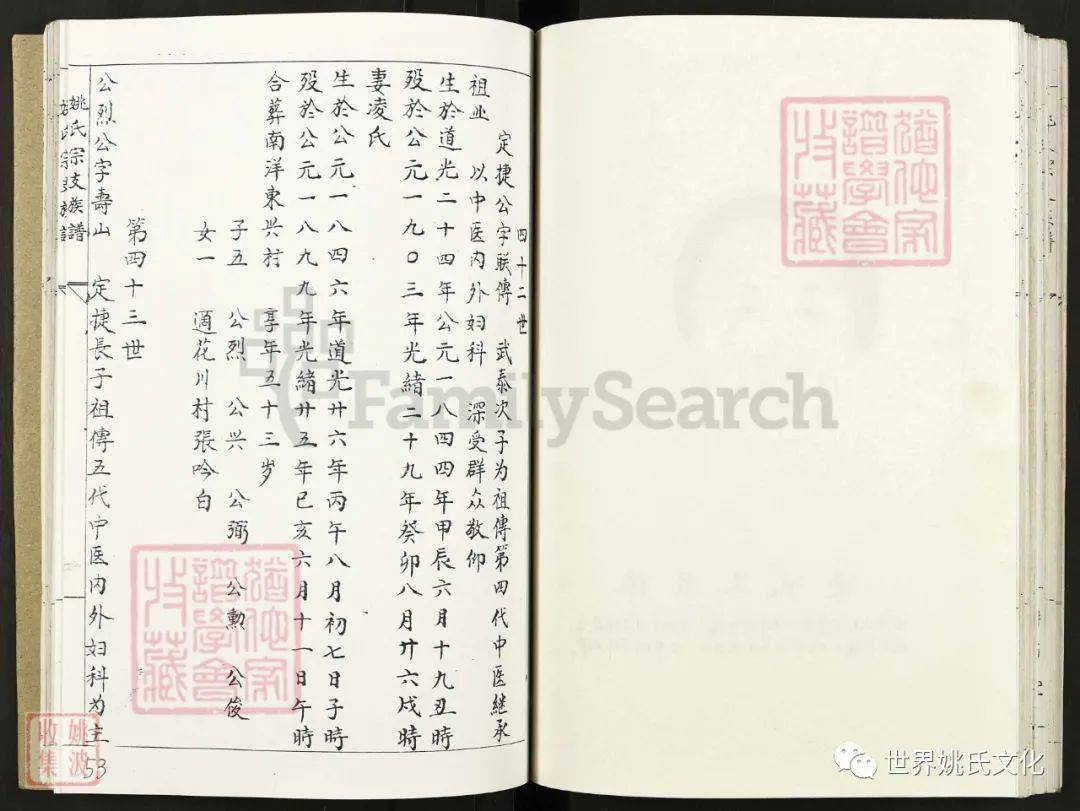 四十二世
定捷公字联傳 武泰次子为祖傳第四代中医継承
祖业 以中医内外妇科 深受群众敬仰
生於道光二十四年公元一八四四年甲辰六月十九丑時
殁於公元一九〇三年光緒二十九年癸卯八月廿六戌時
妻凌氏
生於公元一八四六年道光廿六年丙午八月初七日子時
殁於公元一八九九年光緒廿五年己亥六月十一日午時
合葬南洋東兴村 享年五十三岁
子五 公烈 公兴 公弼 公勲 公俊
女一 適花川村張吟白
第四十三世
公烈公字壽山 定捷長子祖傳五代中医内外妇科为主
姚氏宗支族譜
53
姚波
收集
猶他家
譜學會
收藏
猶他家
譜學會
收藏
FamilySearch
世界姚氏文化